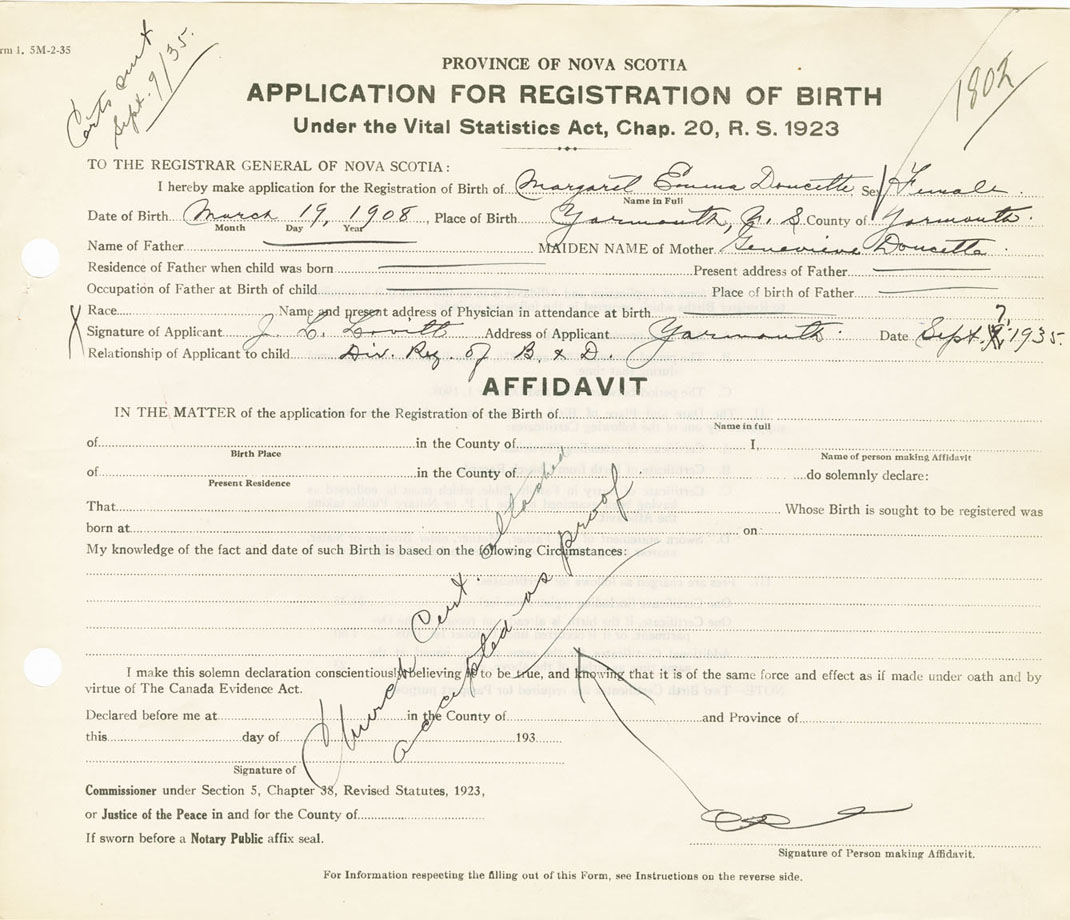 rm 1. 5M-2-35
Certs sent
Sept. 9/35.
1802
PROVINCE OF NOVA SCOTIA
APPLICATION FOR REGISTRATION OF BIRTH
Under the Vital Statistics Act, Chap. 20, R. S. 1923
TO THE REGISTRAR GENERAL OF NOVA SCOTIA:
I hereby make application for the Registration of Birth of Margaret Emma Doucette Sex Female
Name in Full
Date of Birth March 19, 1908, Place of Birth Yarmouth, N. S County of Yarmouth.
Month Day Year
Name of Father MAIDEN NAME of Mother Genevieve Doucette
Residence of Father when child was born Present address of Father
Occupation of Father at Birth of child Place of birth of Father
Race Name and present address of Physician in attendance at birth
X Signature of Applicant J. L. Lovitt Address of Applicant Yarmouth. Date Sept. 7, 1935.
Relationship of Applicant to child Div. Reg. of B. & D.
AFFIDAVIT
IN THE MATTER of the application for the Registration of the Birth of
Name in full
of in the County of I,
Birth Place Name of person making Affidavit
of in the County of do solemnly declare:
Present Residence
That Whose Birth is sought to be registered was
born at on
My knowledge of the fact and date of such Birth is based on the following Circumstances:
Church Cert. attached
accepted as proof
I make this solemn declaration conscientiously believing it to be true, and knowing that it is of the same force and effect as if made under oath and by
virtue of The Canada Evidence Act.
Declared before me at in the County of and Province of
this day of 193
Signature of
Commissioner under Section 5, Chapter 38, Revised Statutes, 1923,
or Justice of the Peace in and for the County of
If sworn before a Notary Public affix seal.
Signature of Person making Affidavit.
For Information respecting the filling out of this Form, see Instructions on the reverse side.